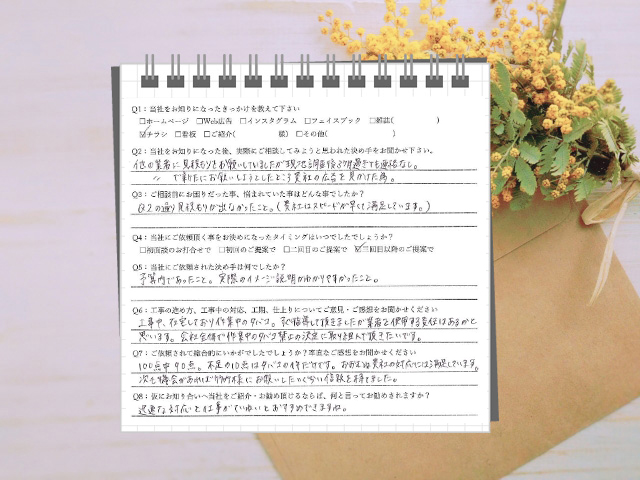 Q1：当社をお知りになったきっかけを教えて下さい
□ホームページ □Web広告 □インスタグラム □フェイスブック □雑誌( )
☑チラシ □看板 □ご紹介( 様) □その他( )
Q2：当社をお知りになった後、実際にご相談してみようと思われた決め手をお聞かせ下さい。
他の業者に見積もりをお願いしていましたが現地調査後3週過ぎても連絡なし。
〃 で新たにお願いしようとしたところ貴社の広告を見かけた為。
Q3：ご相談前にお困りだった事、悩まれていた事はどんな事でしたか？
Q2の通り見積もりが出なかったこと。(貴社はスピードが早くて満足しています。)
Q4：当社にご依頼頂く事をお決めになったタイミングはいつでしたでしょうか？
□初面談のお打合せで □初回のご提案で □二回目のご提案で ☑三回目以降のご提案で
Q5：当社にご依頼された決め手は何でしたか？
予算内であったこと。実際のイメージ説明がわかりやすかったこと。
Q6：工事の進め方、工事中の対応、工期、仕上りについてご意見・ご感想をお聞かせください
工事中、在宅しており作業中のタバコ。
思います。会社全体で作業中のタバコ禁止の決定に取り組んで頂きたいです。
Q7：ご依頼されて総合的にいかがでしたでしょうか？率直なご感想をお聞かせください
100点中90点。不足の10点はタバコの件だけです。おおむね貴社の対応には満足しています。
次も機会があれば 様にお願いしたいくらい信頼を持てました。
Q8：仮にお知り合いへ当社をご紹介・お勧め頂けるならば、何と言ってお勧めされますか？
迅速な対応と工事がていねいとおすすめできますね。